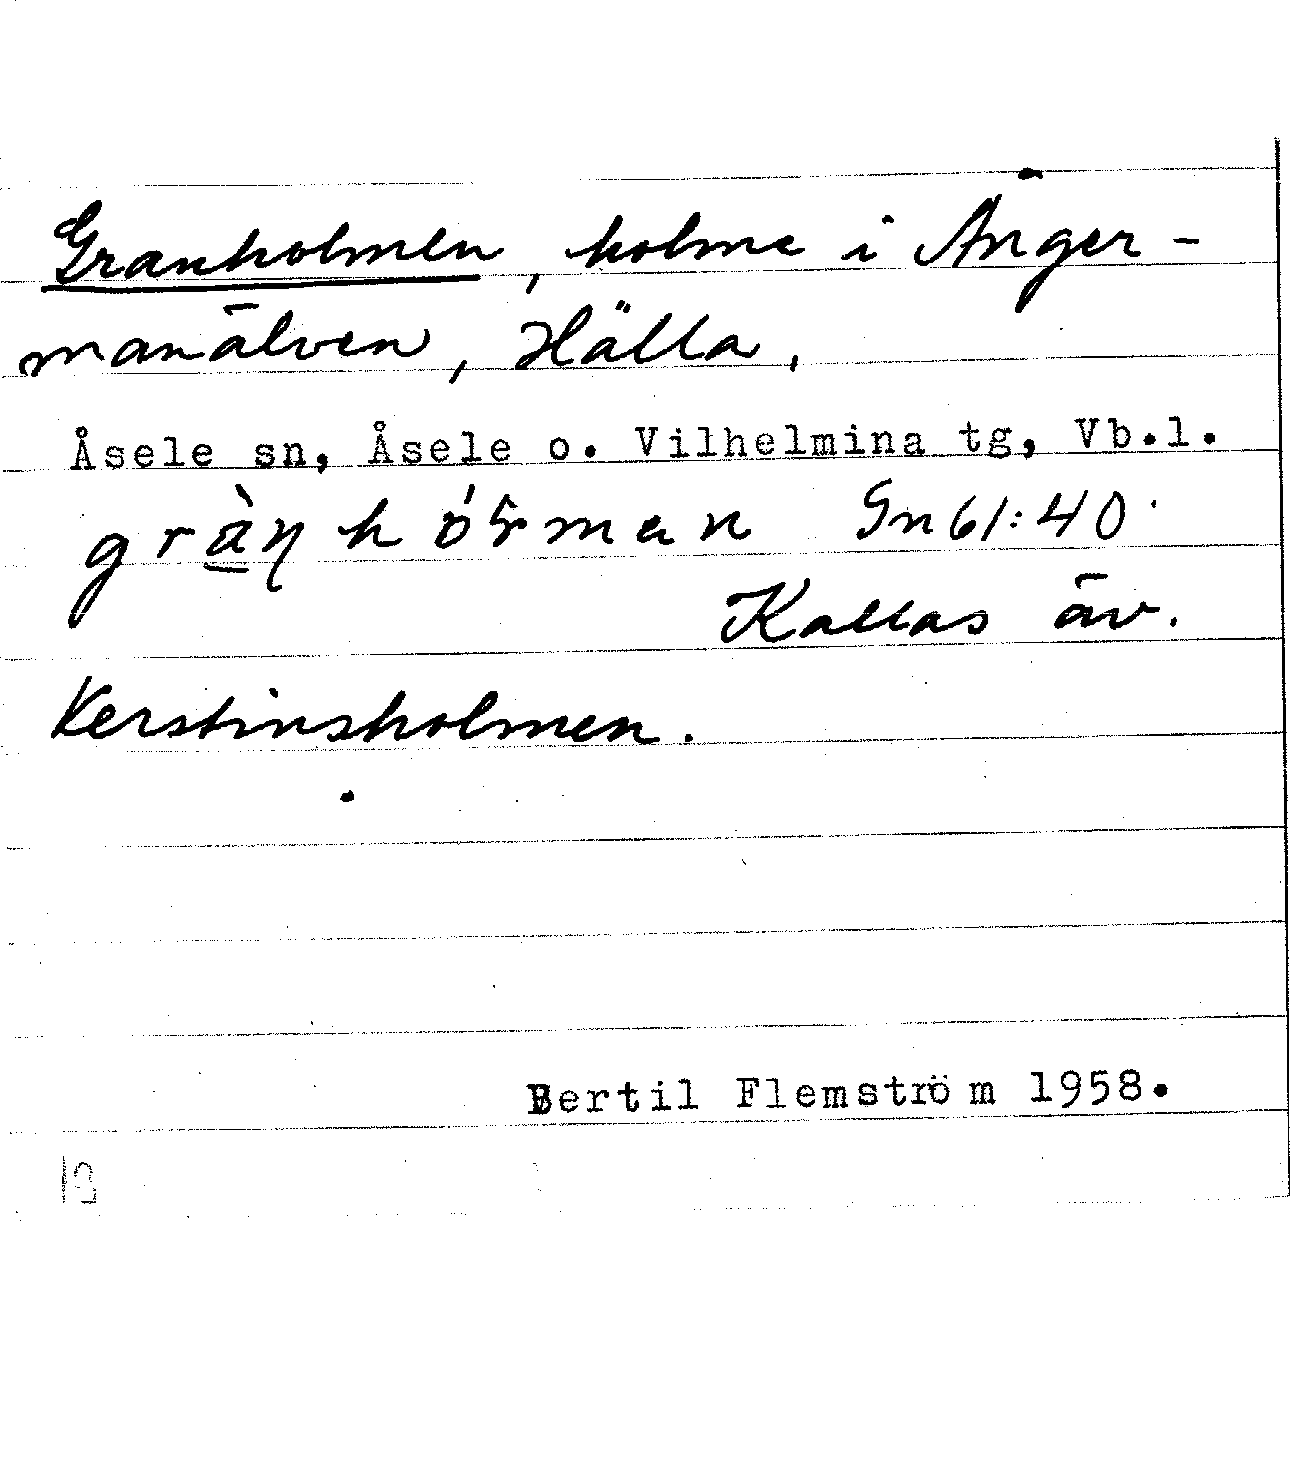 Granholmen, holme i Ånger-
manälven, Hälla,
Åsele sn, Åsele o. Vilhelmina tg, Vb.l.
Gn 61:40
Kallas äv.
Kerstinsholmen.
Bertil Flemström 1958.